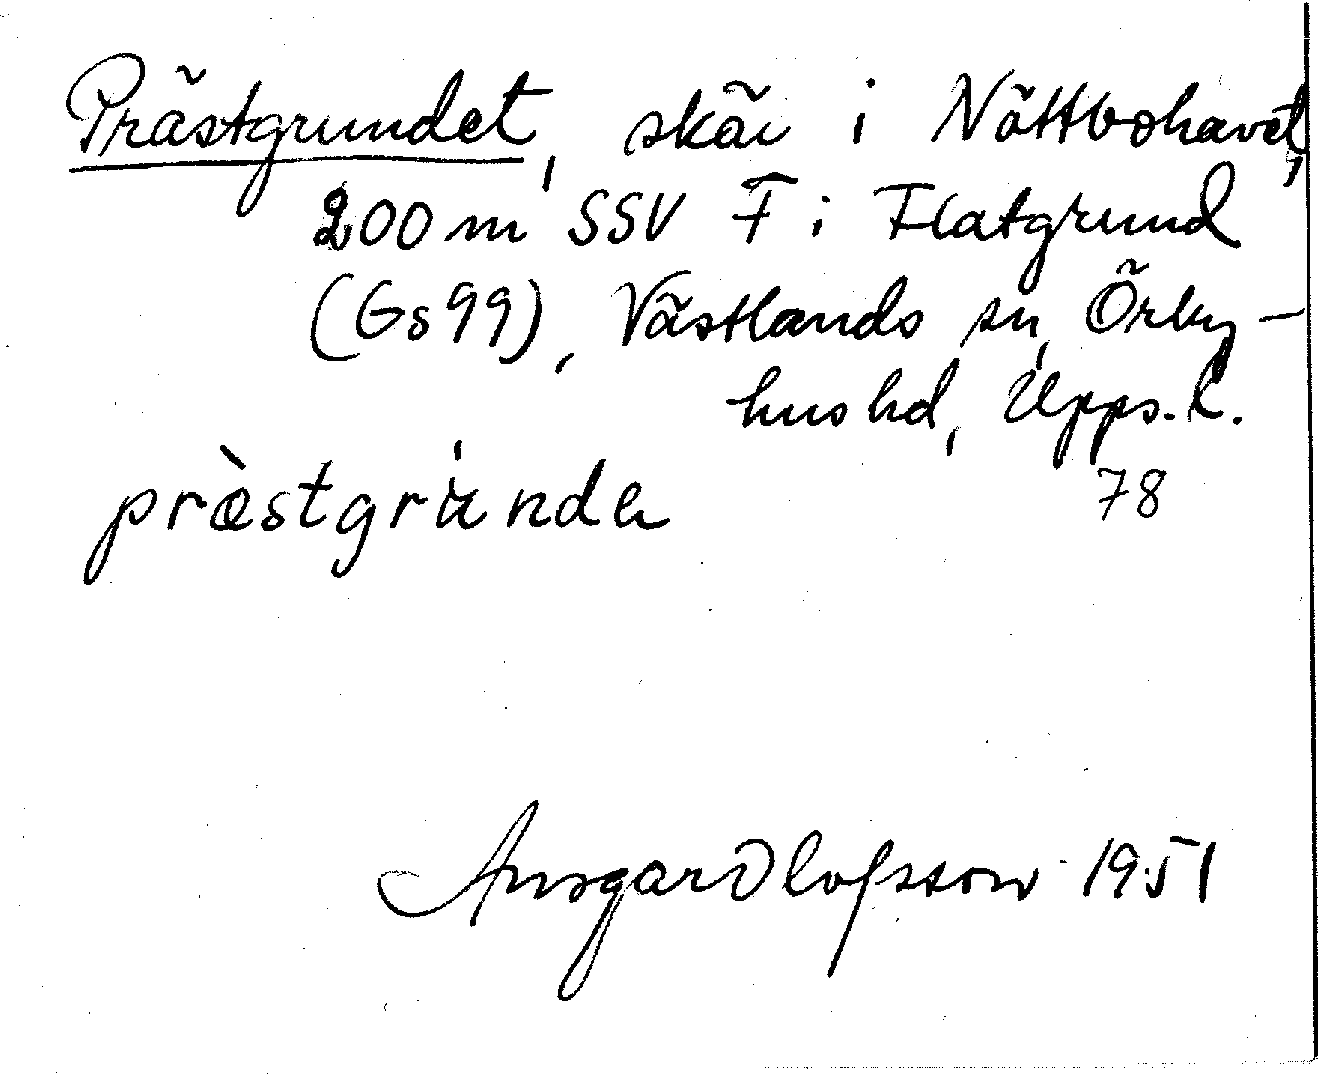 Prästgrundet, skär i Nöttbohavet,
200 m SSV F i Flatgrund
(Gs 99), Västlands sn, Örby-
hus hd, Upps. l.
78
præ̀stgrùndα
Ansgar Olofsson 1951